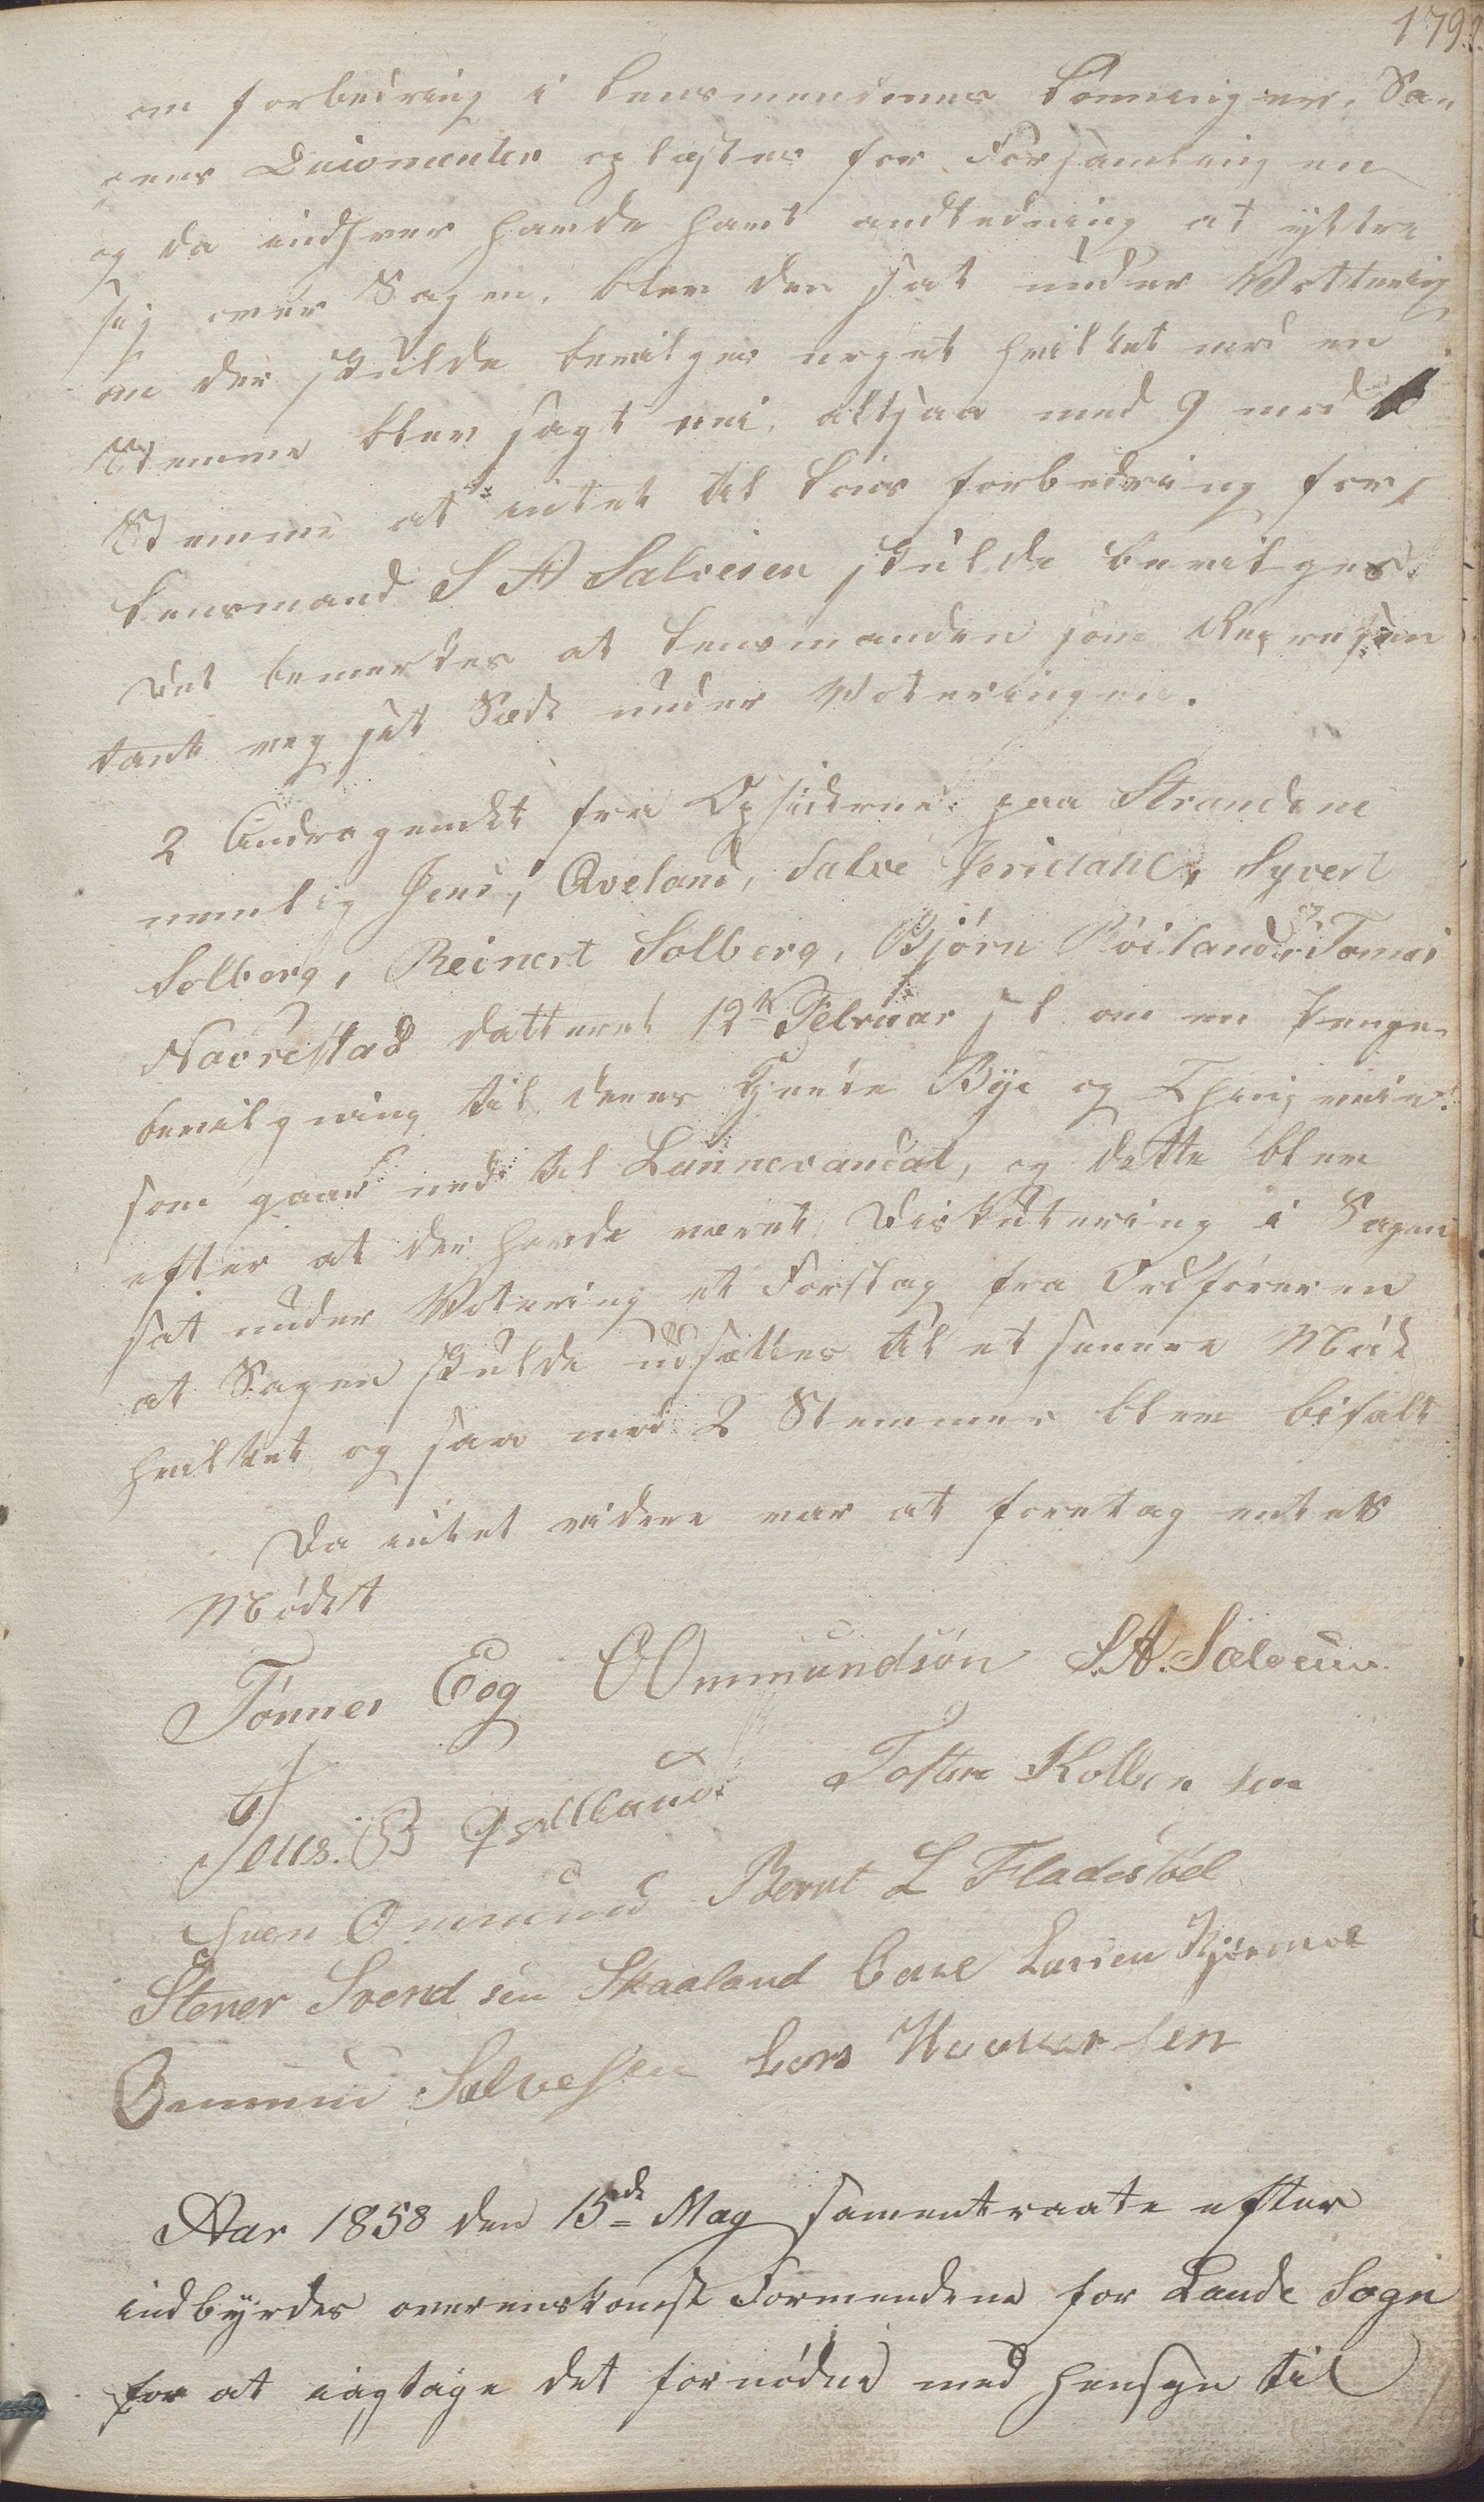 179
om forbedring i Lensmendenes Lønninger, Sa-
gens Ducomenter oplæstes for Forsamlingen
og da indhver havde havt andledning at yttre
sig over Sagen, blev der sat under Wottering
om der skulde bevilges noget hvilket med en
Stemme blev sagt nei, altsaa med 9 mod
Stemme at intet til Løns forbedring for
Lensmand S A Salvesen skulde bevilges.
Det bemerkes at Lensmanden som Represen
tant veg sit Sæde under Woteringen.
2 Andragendet fra Opsiderne paa Strandene
nemlig Jens, Qveland, Salve Jerstadli, Syvert
Solberg, Reinert Solberg, Bjørn Røiland og Tomas
Navrestad datteret 12te Februar sl om en Penge-
bevilgning til deres Gjente Bye og Thingveie
som gaar ned til Lunnevandet, og dette blev
efter at der havde været Diskutering i Sagen
sat under Wotering et Forslag fra Ordføreren
at Sagen skulde udsættes til et senere Møde
hvilket og saa mod 2 Stemmer blev bifalt
Da intet videre var at foretag entes
Mødet
Tønnes Eeg O Ommundsøn S.A. Salvesen
Jens. B Qvelland Tosten Kolben sen
Sven Ommund Bernt L Fladstöl
Stener Svend sen Skaaland Carl Larsen Kjørmoe
Ommund Salvesen Lars Haakensen
Aar 1858 den 15de May samentraate efter
indbyrdes overenskomst Formendene for Lande Sogn
for at iagtage det fornødne med hensyn til